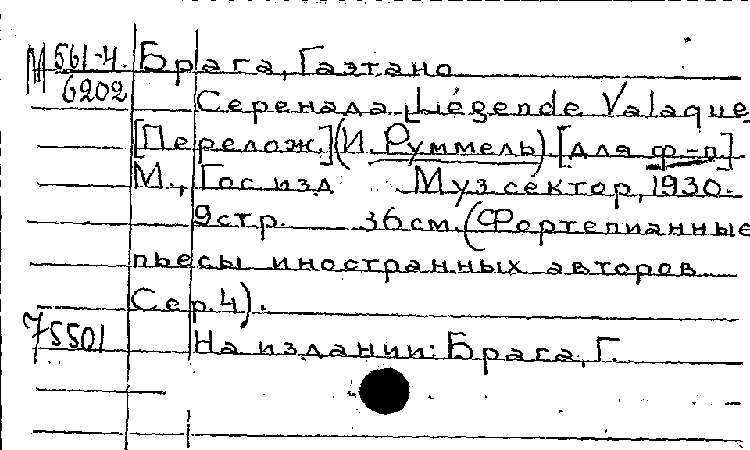 М 561-4. Брага, Гаэтано
6202 Серенада Légende Valaque
[Перелож.] (И. Руммель) [для ф-п]
М., Гос изд Муз сектор, 1930.
9 стр. 36 см. (Фортепианные
пьесы иностранных авторов
Сер. 4).
75501 На издании: Брага, Г.